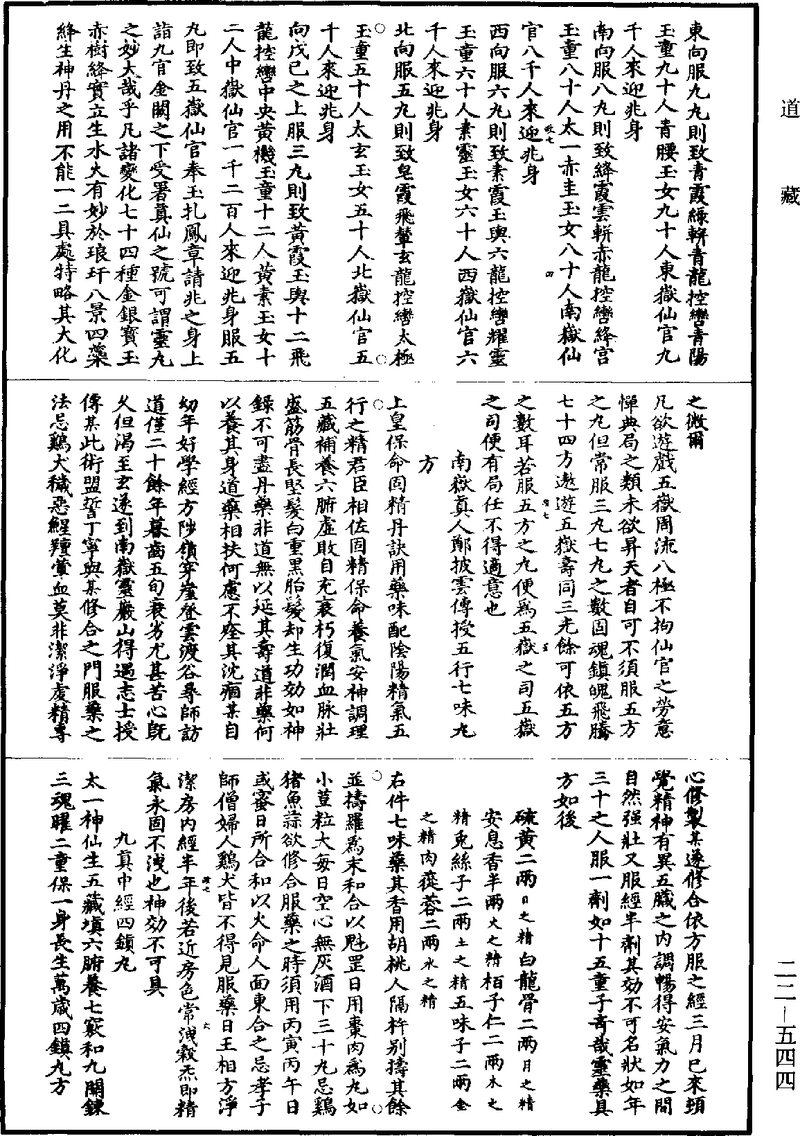 道藏
東向服九九則致青霞綠軿青龍控轡青陽
玉童九十人青腰玉女九十人東嶽仙官九
千人來迎兆身
南向服八九則致絳霞雲軿赤龍控轡絳宮
玉童八十人太一赤圭玉女八十人南嶽仙
官八千人來迎兆身
西向服六九則致素霞玉輿六龍控轡耀靈
玉童六十人素靈玉女六十人西嶽仙官六
千人來迎兆身
北向服五九則致皂霞飛輦玄龍控轡太極
玉童五十人太玄玉女五十人北嶽仙官五
千人來迎兆身
向戊己之上服三九則致黃霞玉輿十二飛
龍控轡中央黃機玉童十二人黃素玉女十
二人中嶽仙官一千二百人來迎兆身服五
九即致五嶽仙官奉玉札鳳章請兆之身上
詣九官金闕之下受署真仙之號可謂靈九
之妙大哉乎凡諸變化七十四種金銀寶玉
赤樹絳實立生水大有妙於琅玕八景四藥
絳生神丹之用不能一二具處特略其大化
之微爾
凡欲遊戲五嶽周流八極不拘仙官之勞意
憚典局之類未欲昇天者自可不須服五方
之九但常服三九七九之數固魂鎮魄飛騰
七十四方遨遊五嶽壽同三光餘可依五方
之數耳若服五方之九便為五嶽之司五嶽
之司便有局任不得適意也
南嶽真人鄭披雲傳授五行七味丸
方
上皇保命固精丹訣用藥味配陰陽精氣五
行之精君臣相佐固精保命養氣安神調理
五藏補養六腑虛敗自充衰朽復潤血脉壯
盛筋骨長堅髮白重黑胎髮却生功効如神
錄不可盡丹藥非道無以延其壽道非藥何
以養其身道藥相扶何慮不痊其沈痼某自
幼年好學經方陟嶺穿崖登雲渡谷尋師訪
道僅二十餘年暮齒五旬衰劣尤甚苦心既
久但渴至玄遂到南嶽靈巖山得遇志士授
傳某此術盟誓丁寧與某修合之門服藥之
法忌鷄犬穢惡鯹羶葷血莫非潔淨虔精專
心修製某遂修合依方服之經三月已來頭
覺精神有異五臟之內調暢得安氣力之間
自然强壯又服經半劑其効不可名狀如年
三十之人服一劑如十五童子奇哉靈藥具
方如後
硫黃二兩日之精白龍骨二兩月之精
安息香半兩火之精栢子仁二兩木之
精兔絲子二兩土之精五味子二兩金
之精肉蓯蓉二兩水之精
右件七味藥其香用胡桃人隔杵別擣其餘
並擣羅爲末和合以魁罡日用棗肉為丸如
小荳粒大每日空心無灰酒下三十九忌鷄
猪魚蒜欲修合服藥之時須用丙寅丙午日
或蜜日所合和以火命人面東合之忌孝子
師僧婦人鷄犬皆不得見服藥日王相方淨
潔房內經半年後若近房色常洩穀炁即精
氣永固不洩也神効不可具
九真中經四鎮丸
太一神仙生五藏填六腑養七竅和九關鍊
三魂曜二童保一身長生萬歲四鎮九方
二二—五四四